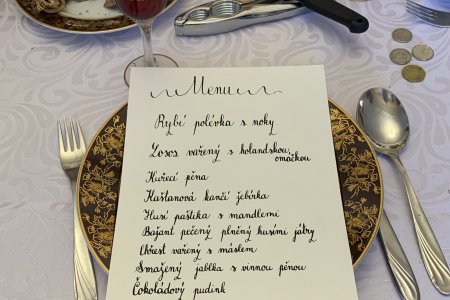 Menu
Rybí polévka s noky
Losos vařený s holandskou omáčkou
Kuřecí pěna
Kaštanová kančí žebírka
Husí paštika s mandlemi
Bažant pečený plněný husími játry
Chřest vařený s máslem
Smažený jablka s vinnou pěnou
Čokoládový pudink